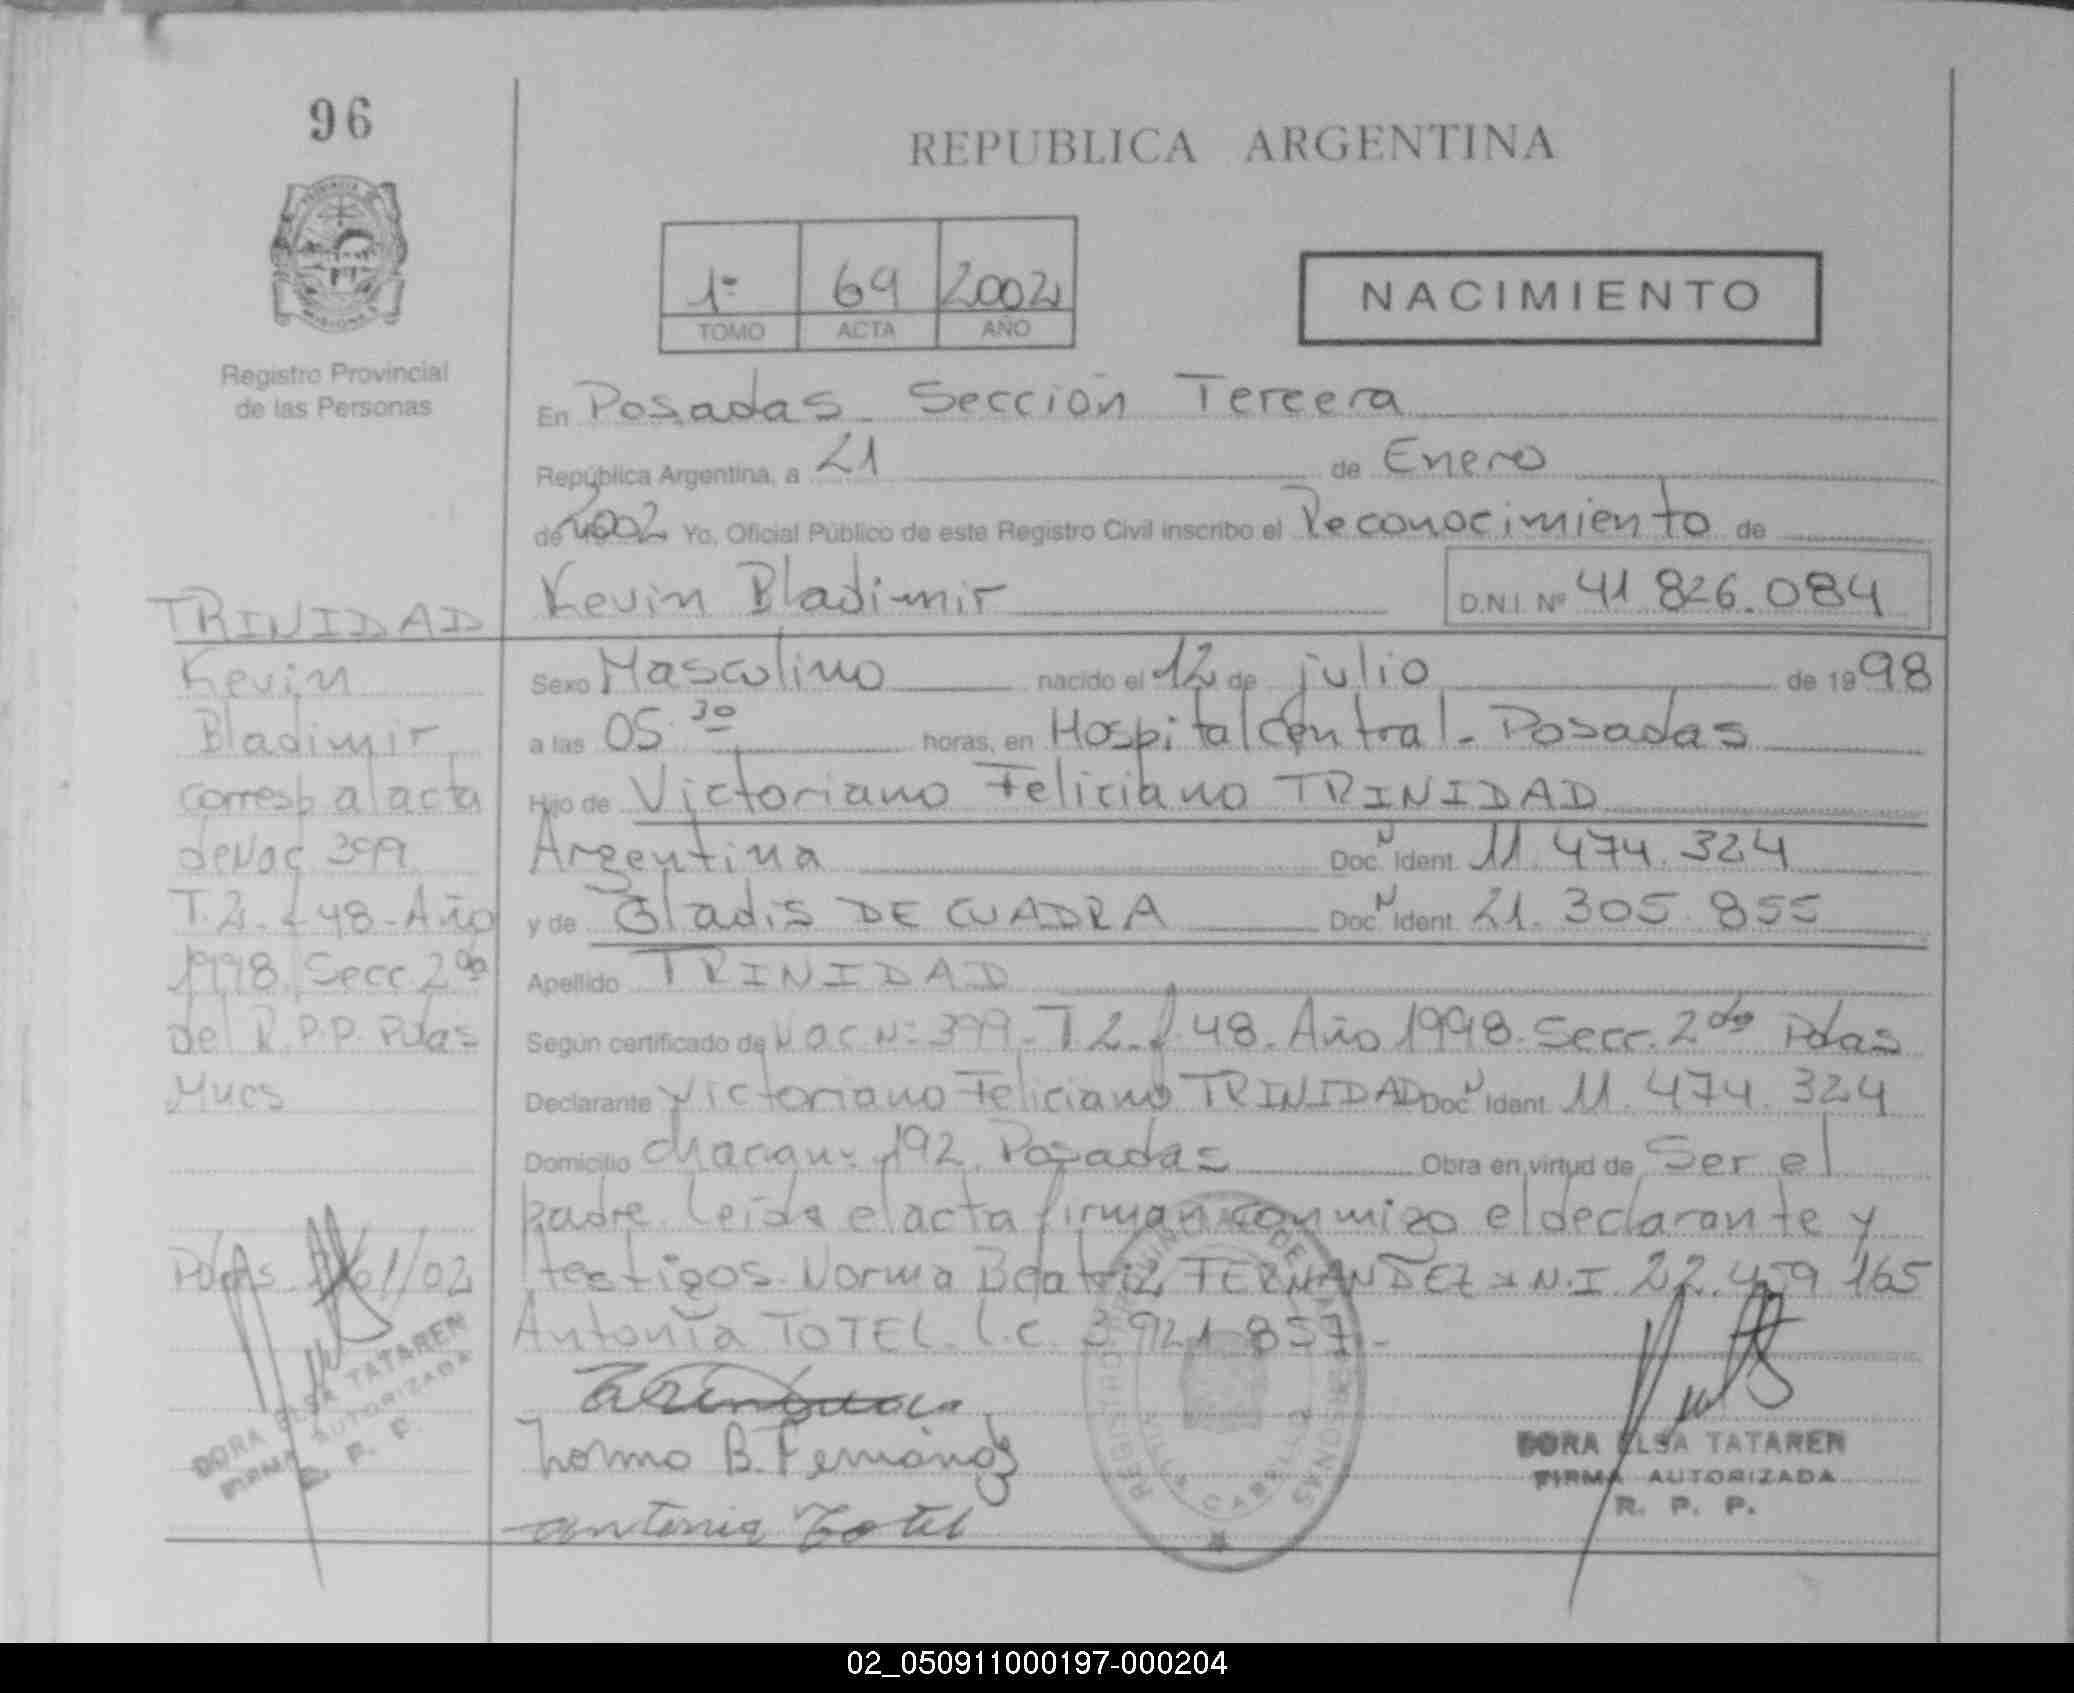 96
REPUBLICA ARGENTINA
1º 69 2002
TOMO ACTA AÑO
NACIMIENTO
Registro Provincial
de las Personas
En Posadas. Sección Tercera
República Argentina, a 21 de Enero
de 2002 Yo, Oficial Público de este Registro Civil inscribo el Reconocimiento de
Kevin Bladimir D.N.I. Nº 41 826.084
TRINIDAD
Kevin
Bladimir
corresp al acta
de Nac 399
T. 2. f 48 - Año
1998. Secc 2da
del R.P.P. Pdas
Mncs
Pdas /02
DORA ELSA TATAREN
FIRMA AUTORIZADA
R. P. P.
Sexo Masculino nacido el 12 de julio de 1998
a las 05 30 horas, en Hospital Central - Posadas
Hijo de Victoriano Feliciano TRINIDAD
Argentina Doc. N Ident. 11. 474. 324
y de Gladis DE CUADRA Doc. N Ident. 21. 305. 855
Apellido TRINIDAD
Según certificado de Nac Nº 399 - T 2. f 48. Año 1998. Secc. 2da Pdas
Declarante Victoriano Feliciano TRINIDAD Doc. N Ident. 11. 474. 324
Domicilio 192. Posadas Obra en virtud de Ser el
padre. Leída el acta firman conmigo el declarante y
testigos. Norma Beatriz FERNANDEZ D.N.I. 22.459 165
Antonia TOTEL. L.C. 3 921 857.-
Norma B. Fernández
Antonia Totel
VILLA CABELLO
DORA ELSA TATAREN
FIRMA AUTORIZADA
R. P. P.
02_050911000197-000204